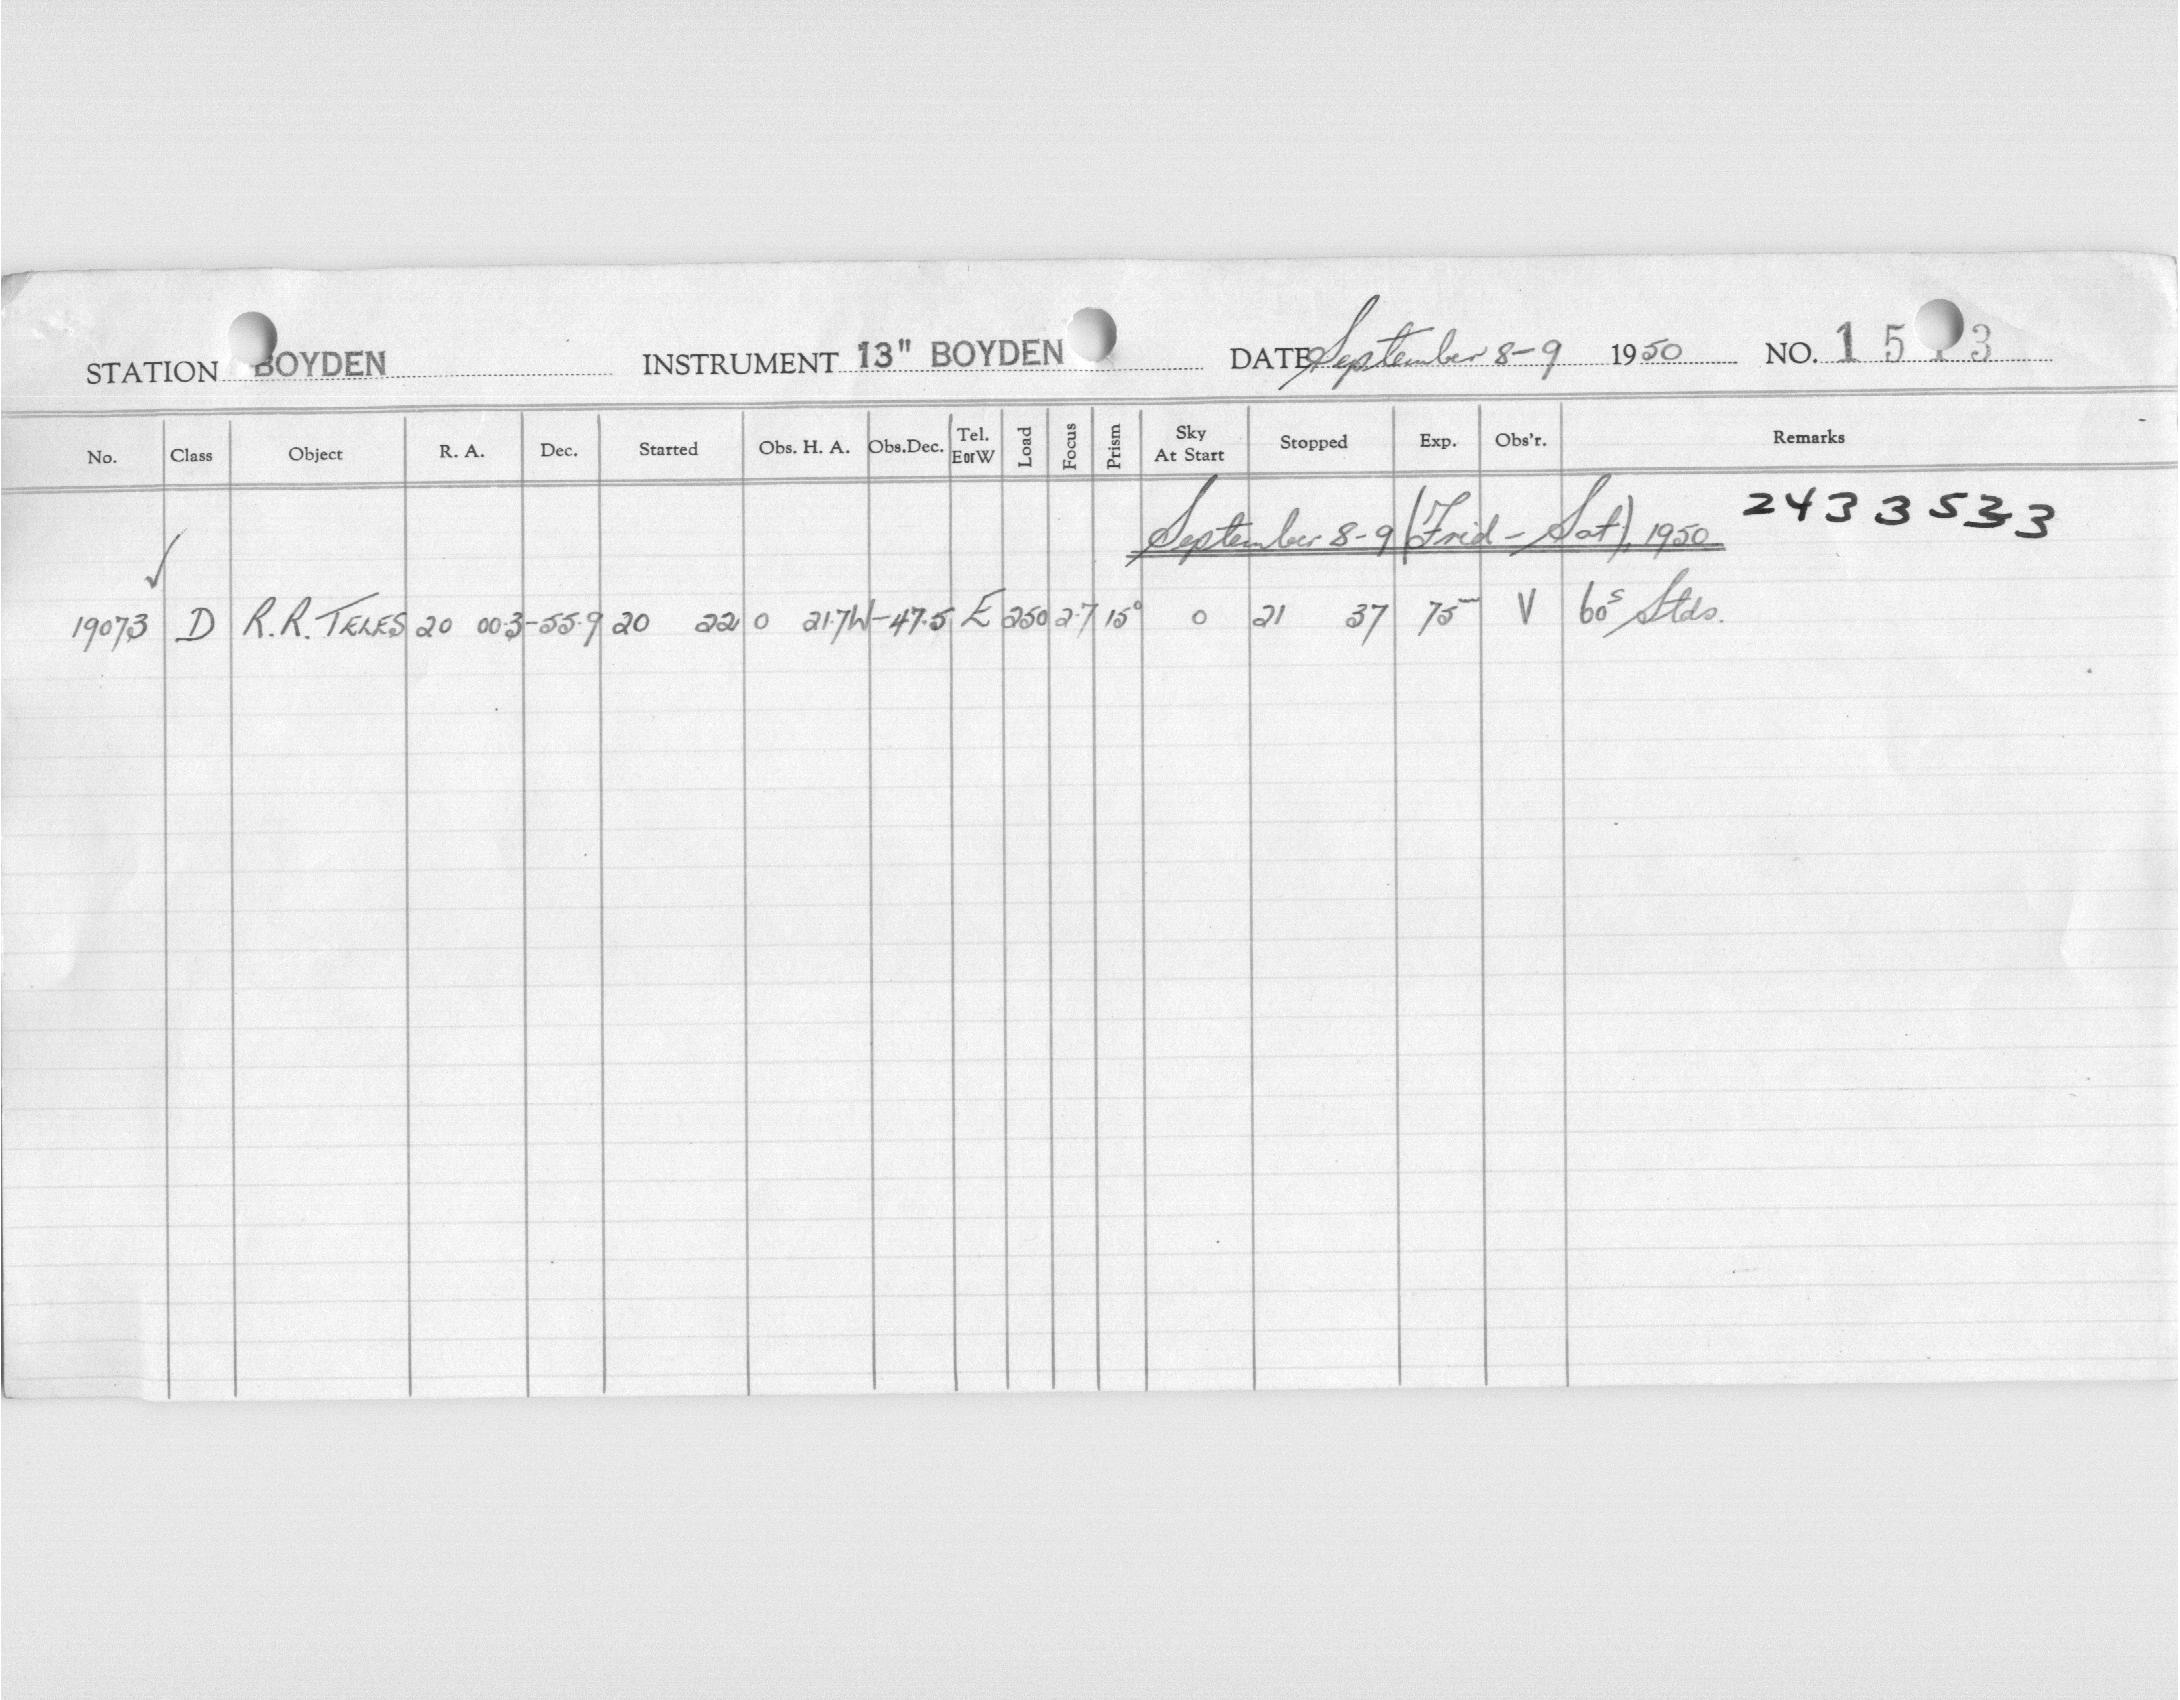 STATION BOYDEN INSTRUMENT 13" BOYDEN DATE September 8-9 1950 NO. 15 3
No. Class Object R. A. Dec. Started Obs. H. A. Obs.Dec. Tel. EorW Load Focus Prism Sky At Start Stopped Exp. Obs'r. Remarks
September 8-9 (Frid - Sat), 1950 2433533
✓
19073 D R.R. TELES 20 00.3 -55.9 20 22 0 21.7W -47.5 E 250 2.7 15° 0 21 37 75ᵐ V 60ˢ Stds.